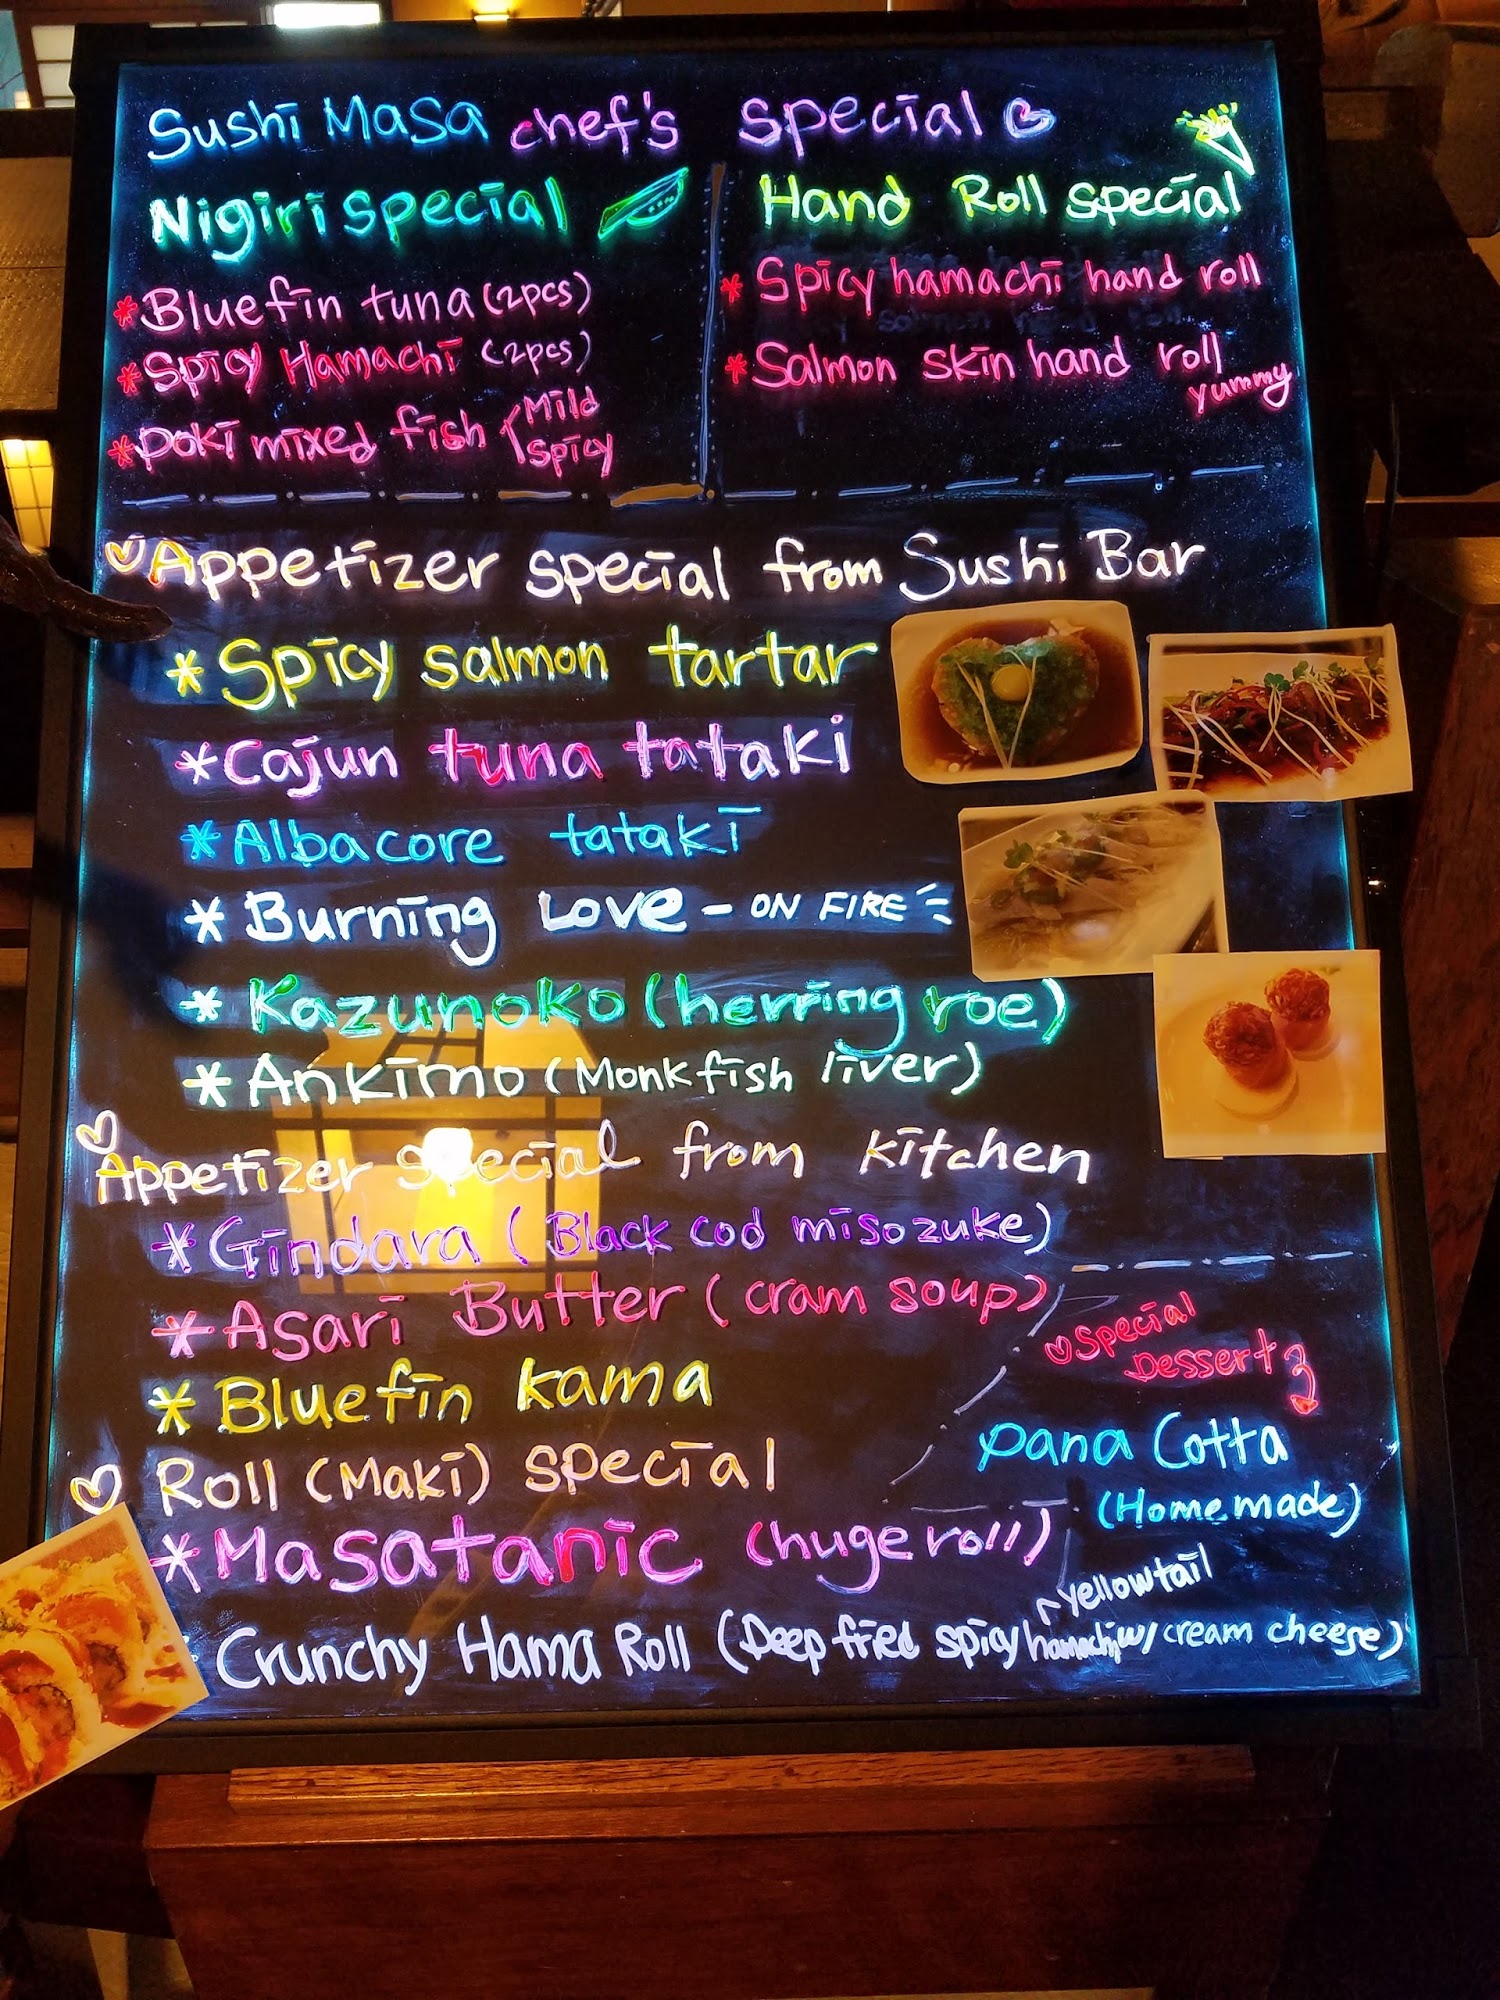 Sushi Masa chef's special
Nigiri special
*Bluefin tuna (2pcs)
*Spicy Hamachi (2pcs)
*Poki mixed fish
Mild
Spicy
Hand Roll special
*Spicy hamachi hand roll
*Salmon skin hand roll
yummy
Appetizer special from Sushi Bar
*Spicy salmon tartar
*Cajun tuna tataki
*Albacore tataki
*Burning Love - ON FIRE
*Kazunoko (herring roe)
*Ankimo (Monkfish liver)
Appetizer special from kitchen
*Gindara (Black cod misozuke)
*Asari Butter (cram soup)
*Bluefin kama
Special
Dessert
Pana Cotta
(Homemade)
Roll (Maki) special
*Masatanic (huge roll)
yellowtail
Crunchy Hama Roll (Deep fried spicy hamachi w/ cream cheese)